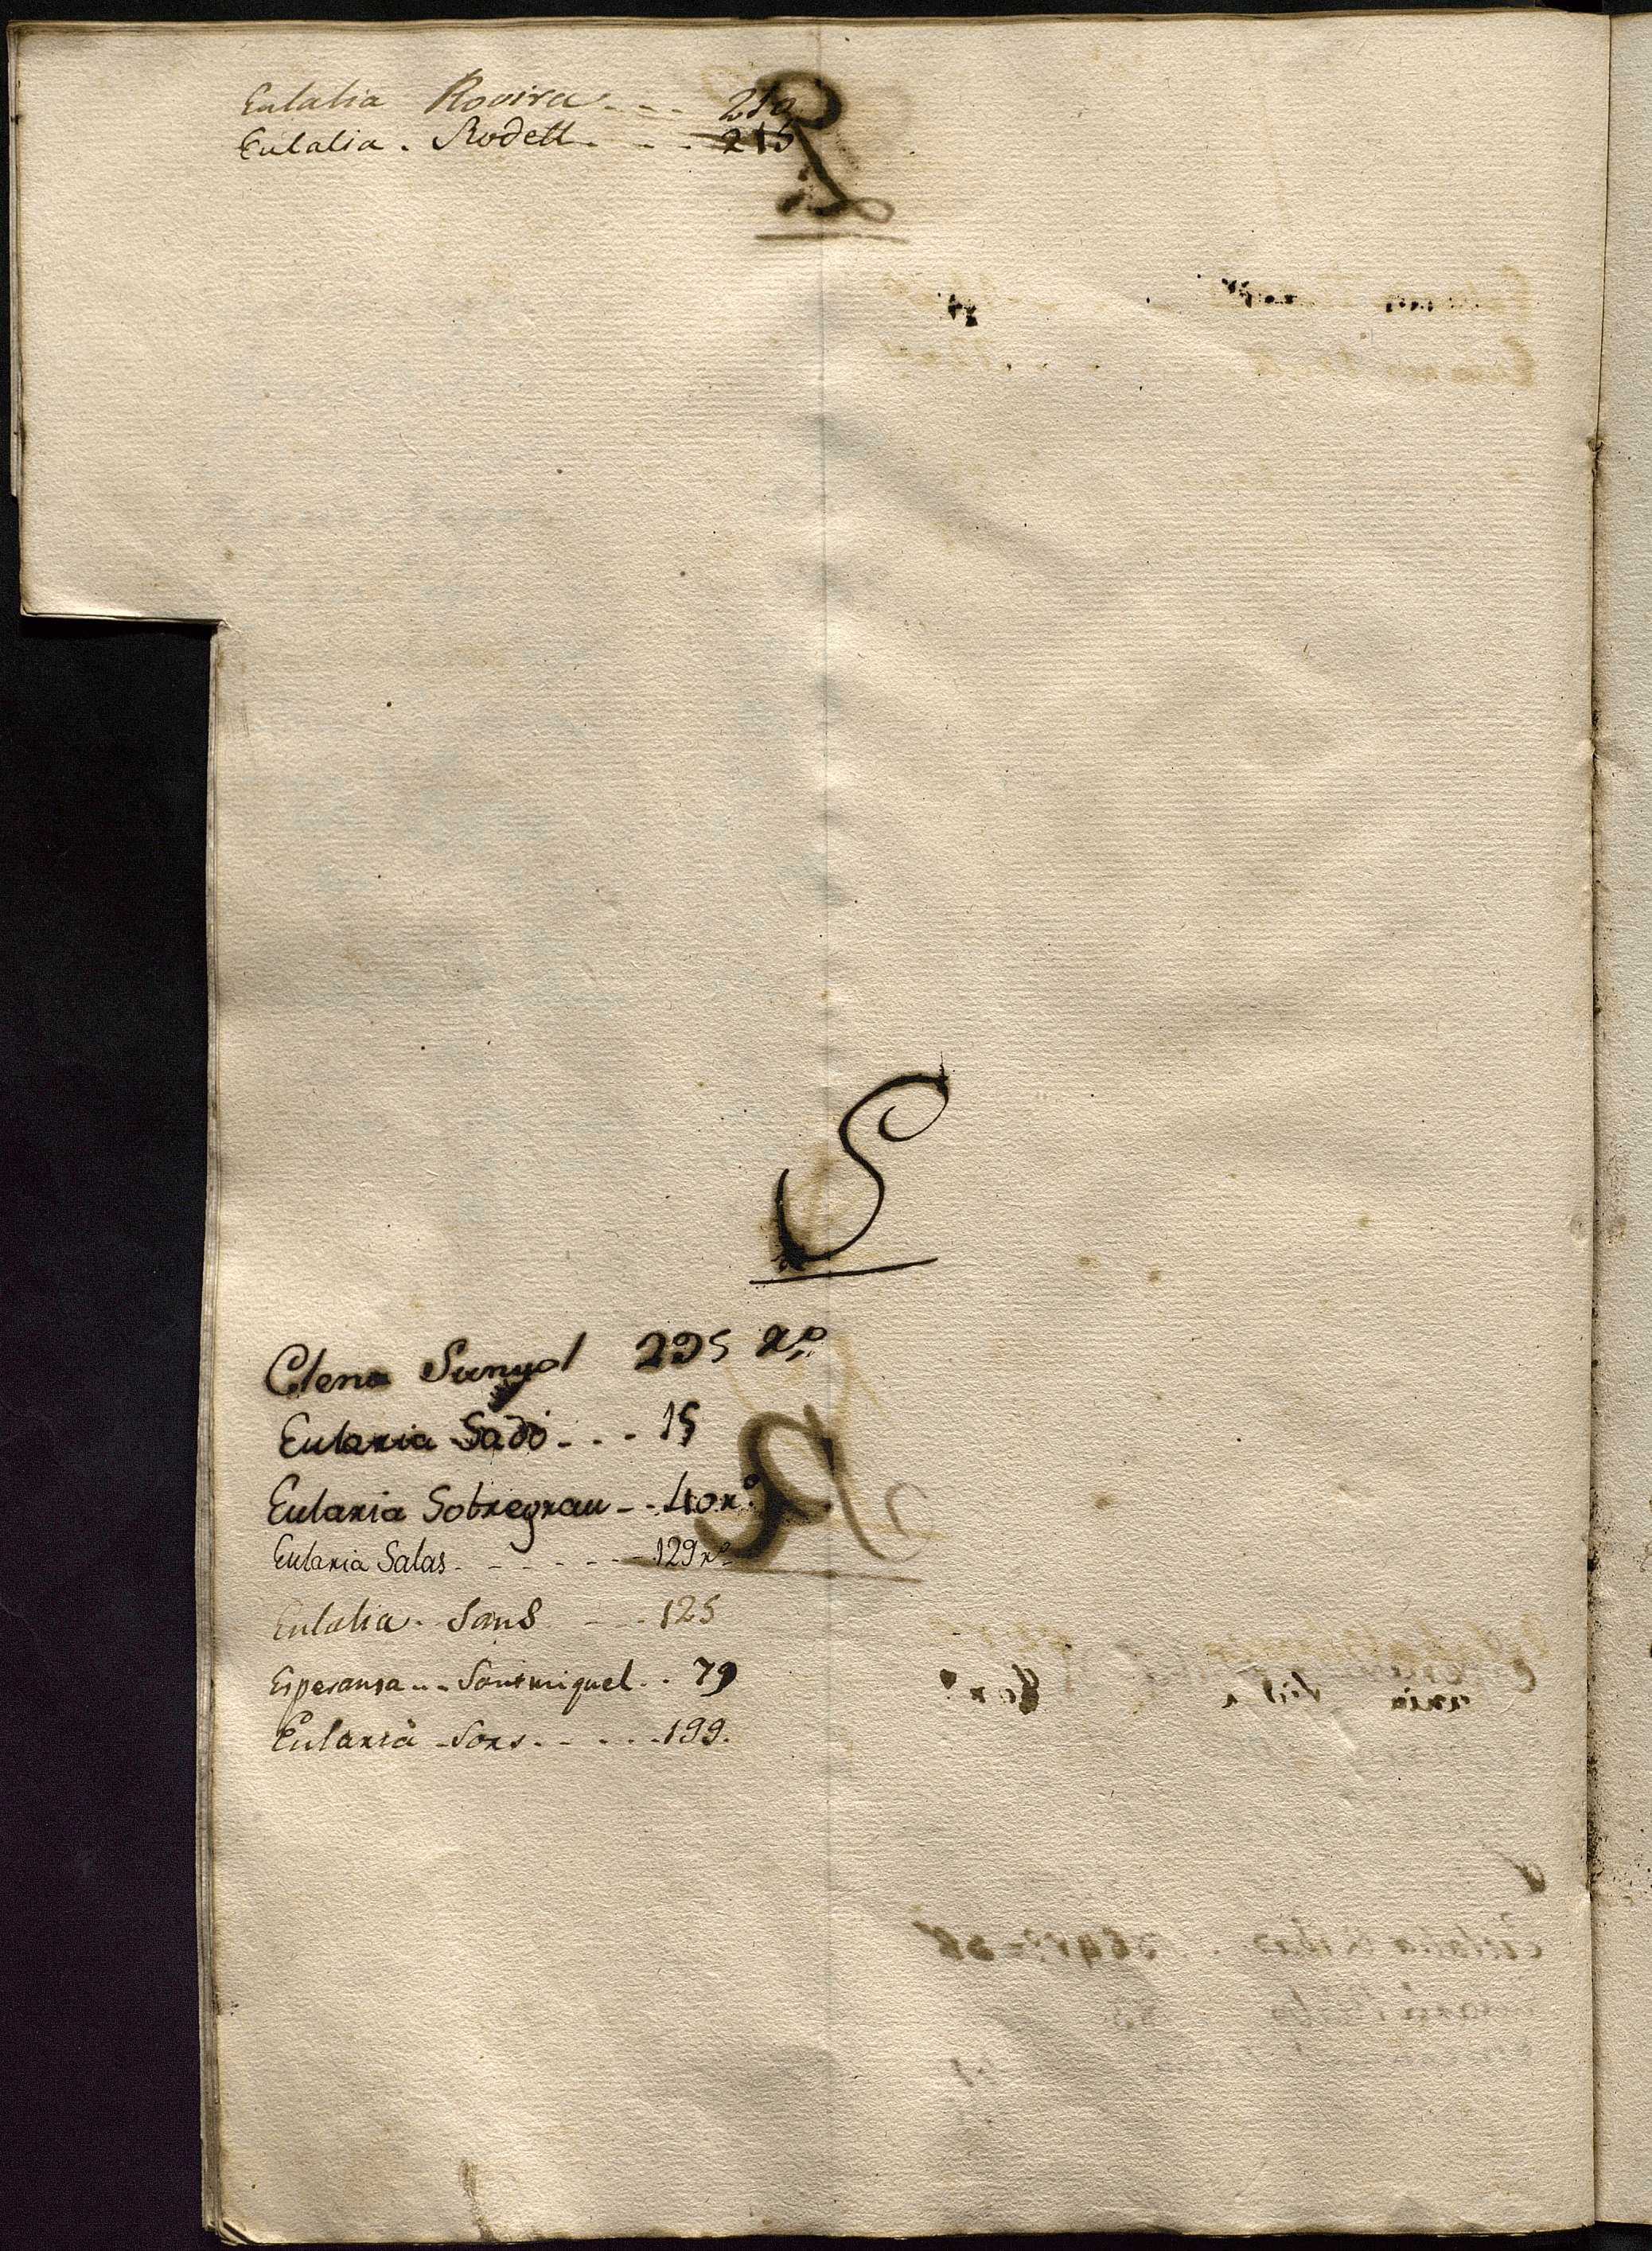 Eulalia Rovira - - - 210
Eulalia . Rodell . - - . 215
S
Elena Sunyol 295 rº
Eularia Sadó - . . - 15
Eularia Sobregrau - - 40 rº
Eularia Salas - - - - - - 129 rº
Eulalia . Sans - - - 125
Esperansa - - - Santmiquel . . 79
Eularià - Sors . - . . - . 199.